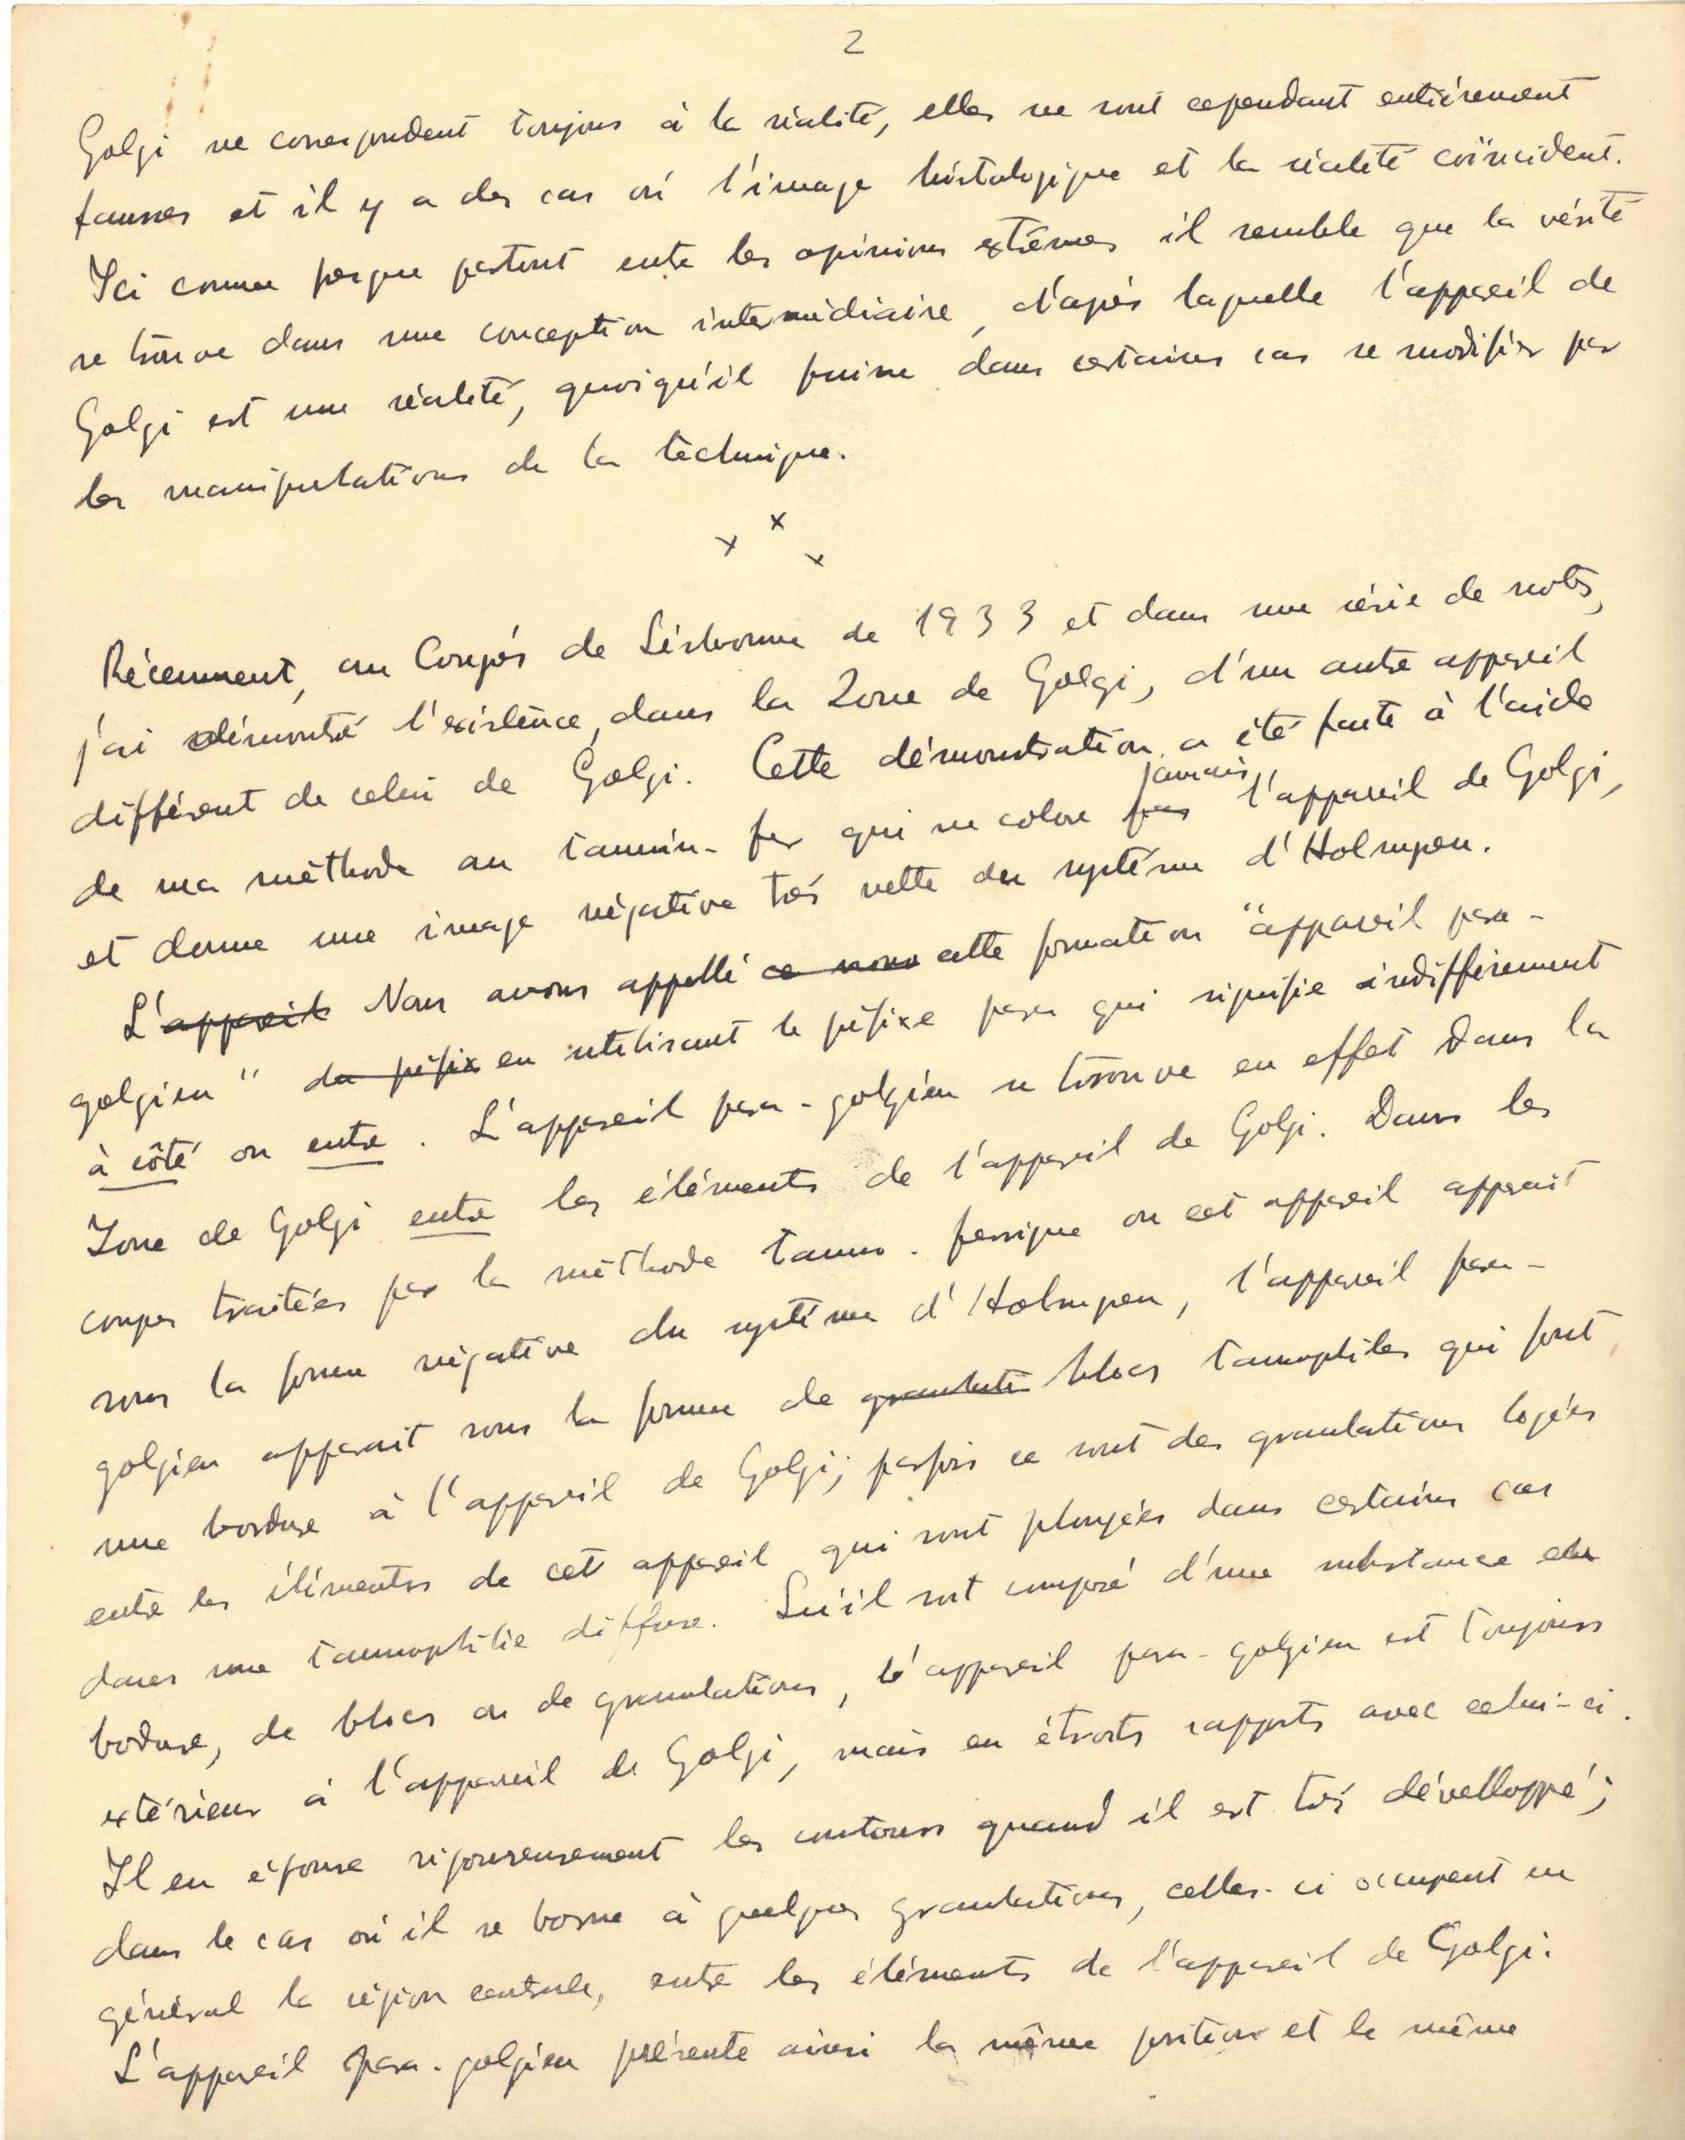 2
Golgi ne correspondent toujours à la réalité, elles ne sont cependant entièrement
fausses et il y a des cas où l'image histologique et la réalité coïncident.
Ici comme presque partout entre les opinions extrêmes il semble que la vérité
se trouve dans une conception intermédiaire, d'après laquelle l'appareil de
Golgi est une réalité, quoiqu'il puisse dans certains cas se modifier par
les manipulations de la technique.
x x x
Récemment, au Congrès de Lisbonne de 1933 et dans une série de notes,
j'ai démontré l'existence, dans la Zone de Golgi, d'un autre appareil
différent de celui de Golgi. Cette démonstration a été faite à l'aide
de ma méthode au tannin-fer qui ne colore pas jamais l'appareil de Golgi,
et donne une image négative très nette du système d'Holmgren.
L'appareil Nous avons appellé ce nous cette formation "appareil para-
golgien" du préfix en utilisant le préfixe para qui signifie indifféremment
à côté ou entre. L'appareil para-golgien se trouve en effet dans la
Zone de Golgi entre les éléments de l'appareil de Golgi. Dans les
coupes traitées par la méthode tanno-ferrique où cet appareil apparait
sous la forme négative du système d'Holmgren, l'appareil para-
golgien apparait sous la forme de granulatio blocs tannophiles qui font
une bordure à l'appareil de Golgi; parfois ce sont des granulations logées
entre les éléments de cet appareil qui sont plongées dans certains cas
dans une tannophilie diffuse. Qu'il soit composé d'une substance de
bodure, de blocs ou de granulations, l'appareil para-golgien est toujours
extérieur à l'appareil de Golgi, mais en étroits rapports avec celui-ci.
Il en épouse rigoureusement les contours quand il est très dévelloppé;
dans le cas où il se borne à quelques granulations, celles-ci occupent en
général la région centrale, entre les éléments de l'appareil de Golgi.
L'appareil para-golgien présente ainsi la même position et le même